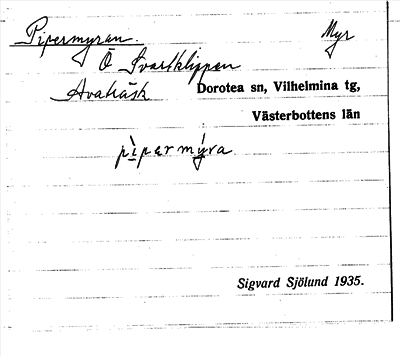 Pipermyran. Myr
Ö Svartklippen
Avaträsk Dorotea sn, Vilhelmina tg,
Västerbottens län
pìpermýra
Sigvard Sjölund 1935.